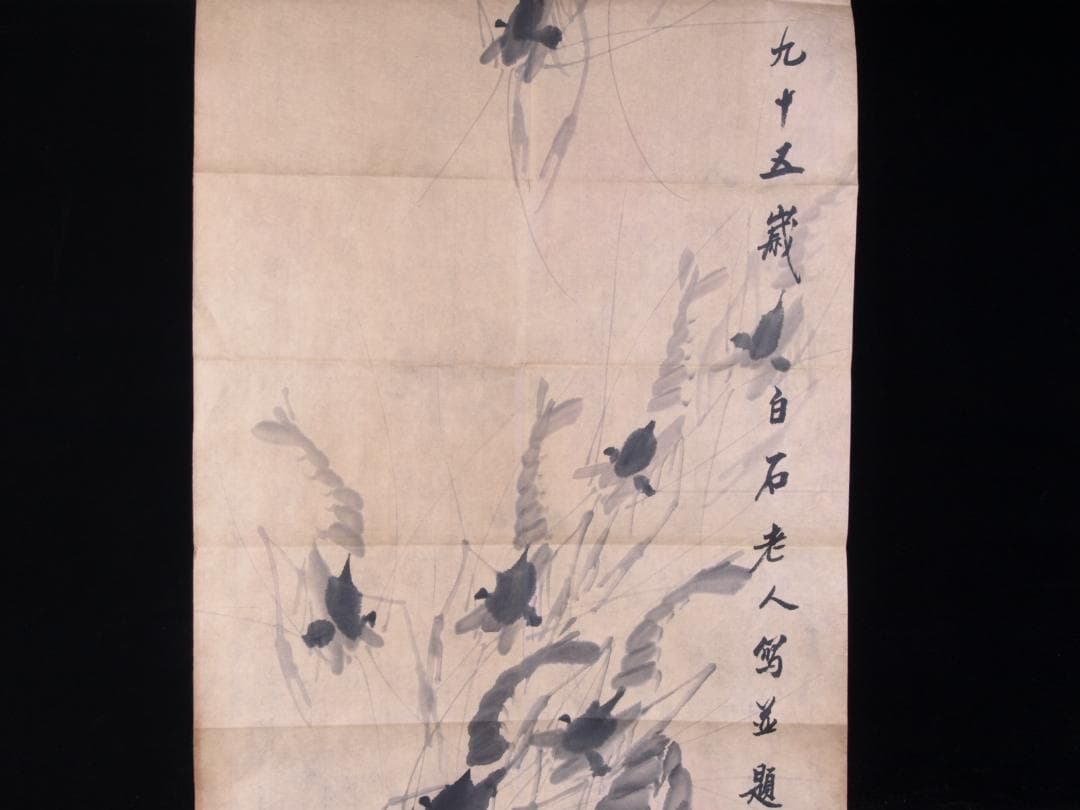 九十五歲白石老人寫並題